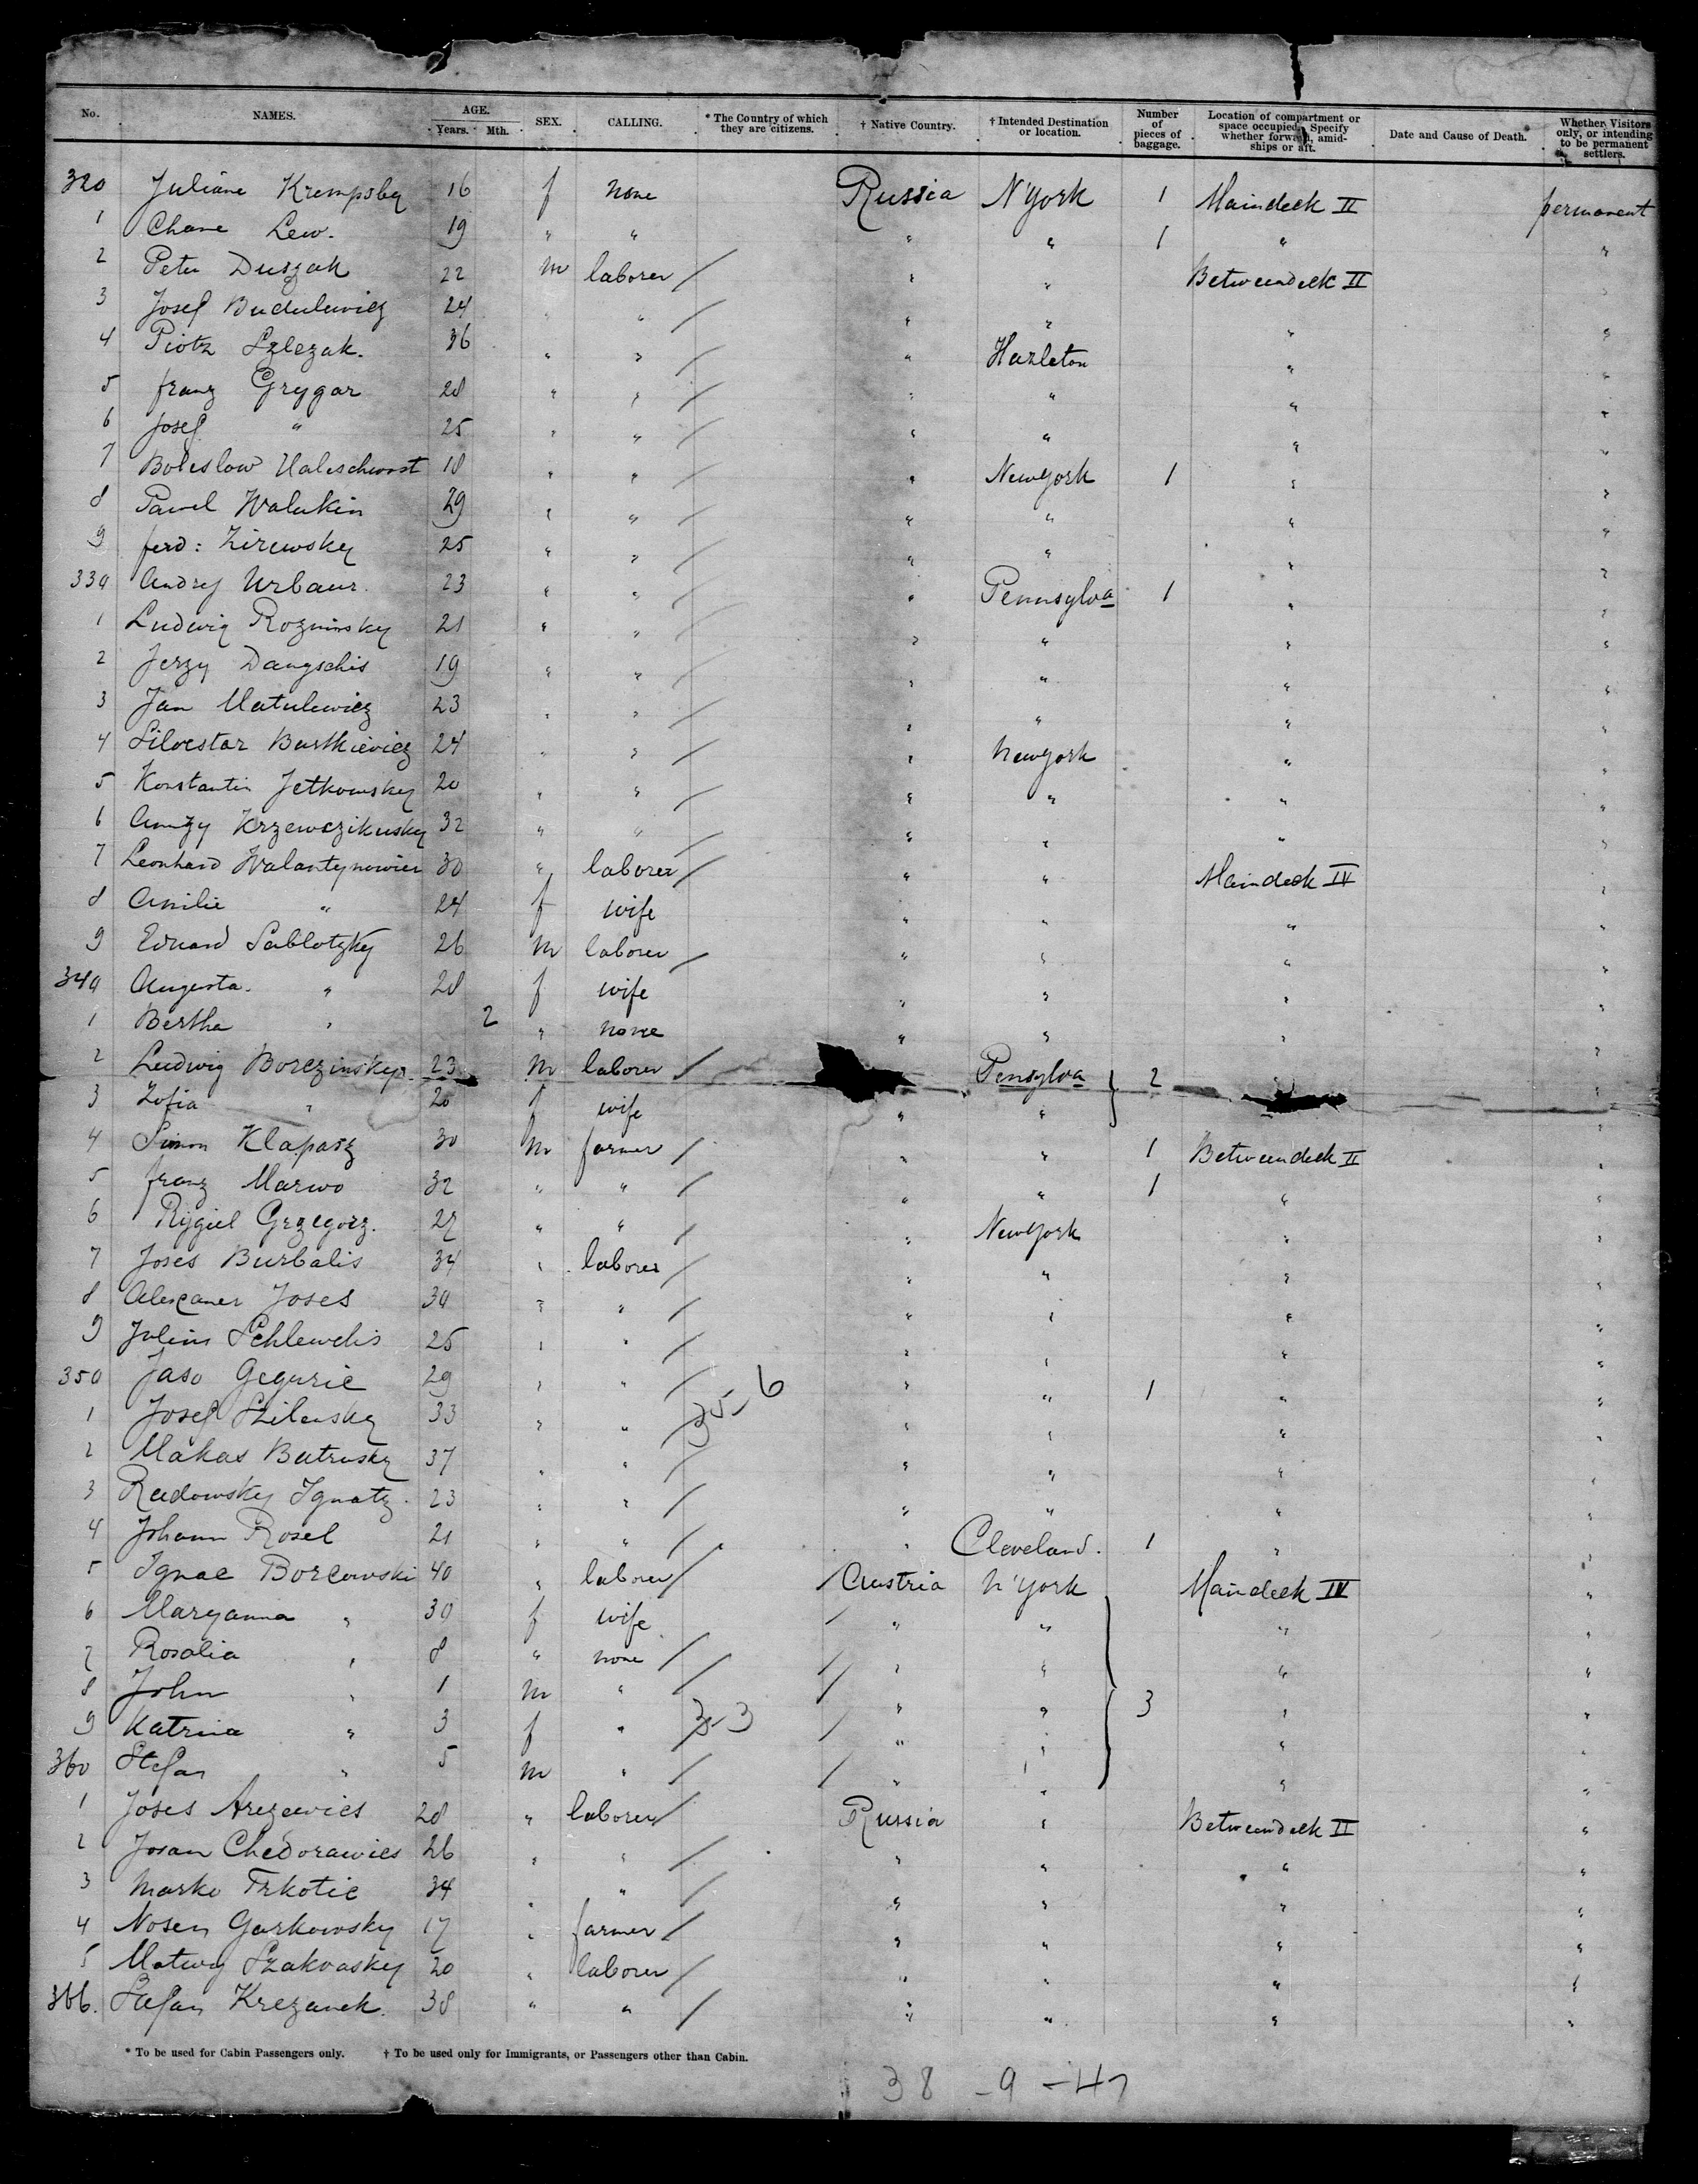 No. NAMES. AGE. Years. Mth. SEX. CALLING. * The Country of which they are citizens. † Native Country. † Intended Destination or location. Number of pieces of baggage. Location of compartment or space occupied. Specify whether forward, amidships or aft. Date and Cause of Death. Whether Visitors only, or intending to be permanent settlers.
320 Juliane Krempsky 16 f none Russia N'York 1 Maindeck II permanent
1 Chane Lew. 19 " " " " 1 " "
2 Peter Duszak 22 m laborer / " " Betweendeck II "
3 Josef Budulewicz 24 " " / " " " "
4 Piotr Szlezak. 36 " " / " Hazleton " "
5 franz Grygar 28 " " / " " " "
6 Josef " 25 " " / " " " "
7 Boleslow 18 " " / " NewYork 1 " "
8 Pawel Walukin 29 " " / " " " "
9 ferd: Zirewsky 25 " " / " " " "
330 Andrej Urbanr. 23 " " / " Pennsylva 1 " "
1 Ludwig Rozminsky 21 " " / " " " "
2 Jerzy Daugschis 19 " " / " " " "
3 Jan Matulewicz 23 " " / " " " "
4 Silvestar Burtkievicz 24 " " / " NewYork " "
5 Konstantin Jetkowsky 20 " " / " " " "
6 Krzewczikusky 32 " " / " " " "
7 Leonhard Walantynowicz 30 " laborer / " " Maindeck IV "
8 Amilie " 24 f wife " " " "
9 Eduard Sablotzky 26 m laborer / " " " "
340 Augusta. " 28 f wife " " " "
1 Bertha " 2 " none " " " "
2 Ludwig Borczinsky 23 m laborer / Pensylva } 2 "
3 Zofia " 20 f wife " " "
4 Simon Klapasz 30 m farmer / " " 1 Betweendeck II "
5 franz Marwo 32 " " / " " 1 " "
6 Rygiel Grzegorz. 27 " " / " NewYork " "
7 Joses Burbalis 34 " laborer / " " " "
8 Alexaner Joses 30 " " / " " " "
9 Julius Schlewelis 25 " " / " " " "
350 Jaso Gegurie 29 " " / " " 1 " "
35-6
1 Josef Szilensky 33 " " / " " " "
2 Makas Batrusky 37 " " / " " " "
3 Radowsky Ignatz. 23 " " / " " " "
4 Johann Rosel 21 " " / " Cleveland. 1 " "
5 Ignac Borcowski 40 " laborer / / Austria N'York Maindeck IV "
6 Maryanna " 30 f wife / " " " "
7 Rosalia " 8 " none / / " " " "
8 John " 1 m " / / " " 3 " "
9 Katrina " 3 f " 3-3 / " " " "
360 Stefan " 5 m " / / " " " "
1 Joses Arezewies 28 " laborer / Russia " Betweendeck II "
2 Josan Chedorawies 26 " " / " " " "
3 Marko Trkotic 34 " " / " " " "
4 Nosen Garkowsky 17 " farmer / " " " "
5 Matwey Szakvasky 20 " laborer / " " " "
366. Stefan Krezanek. 38 " " / " " " "
* To be used for Cabin Passengers only. † To be used only for Immigrants, or Passengers other than Cabin.
38 - 9 - 47